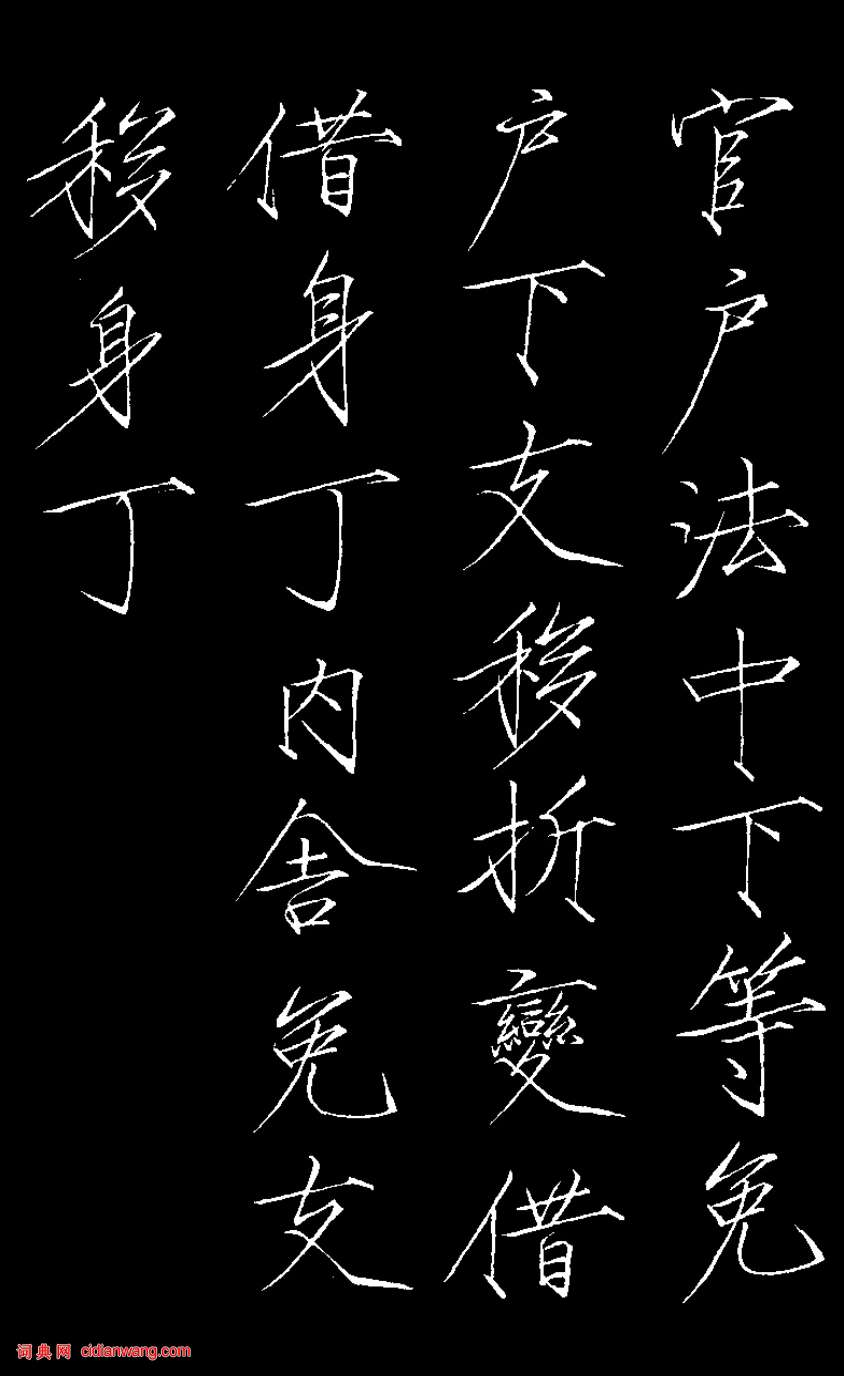 官户法中下等免
户下支移折變借
借身丁内舍免支
移身丁
词典网 cidianwang.com